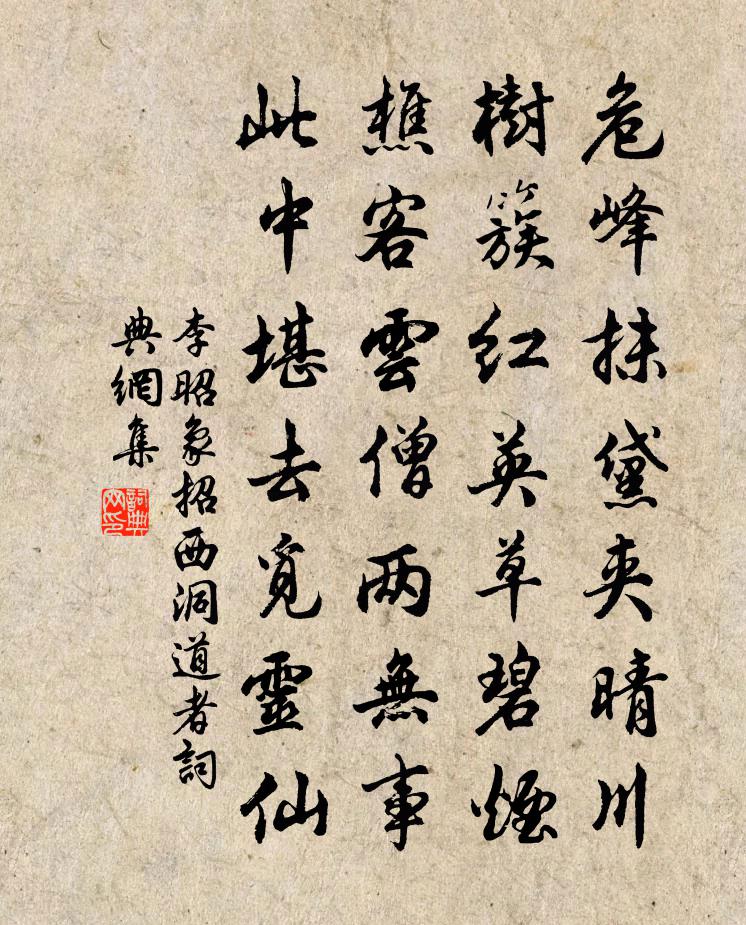 危峰抹黛夾晴川
樹簇紅英草碧煙
樵客雲僧两無事
此中堪去覓靈仙
李昭象招西洞道者詞
典網集
詞典
网印